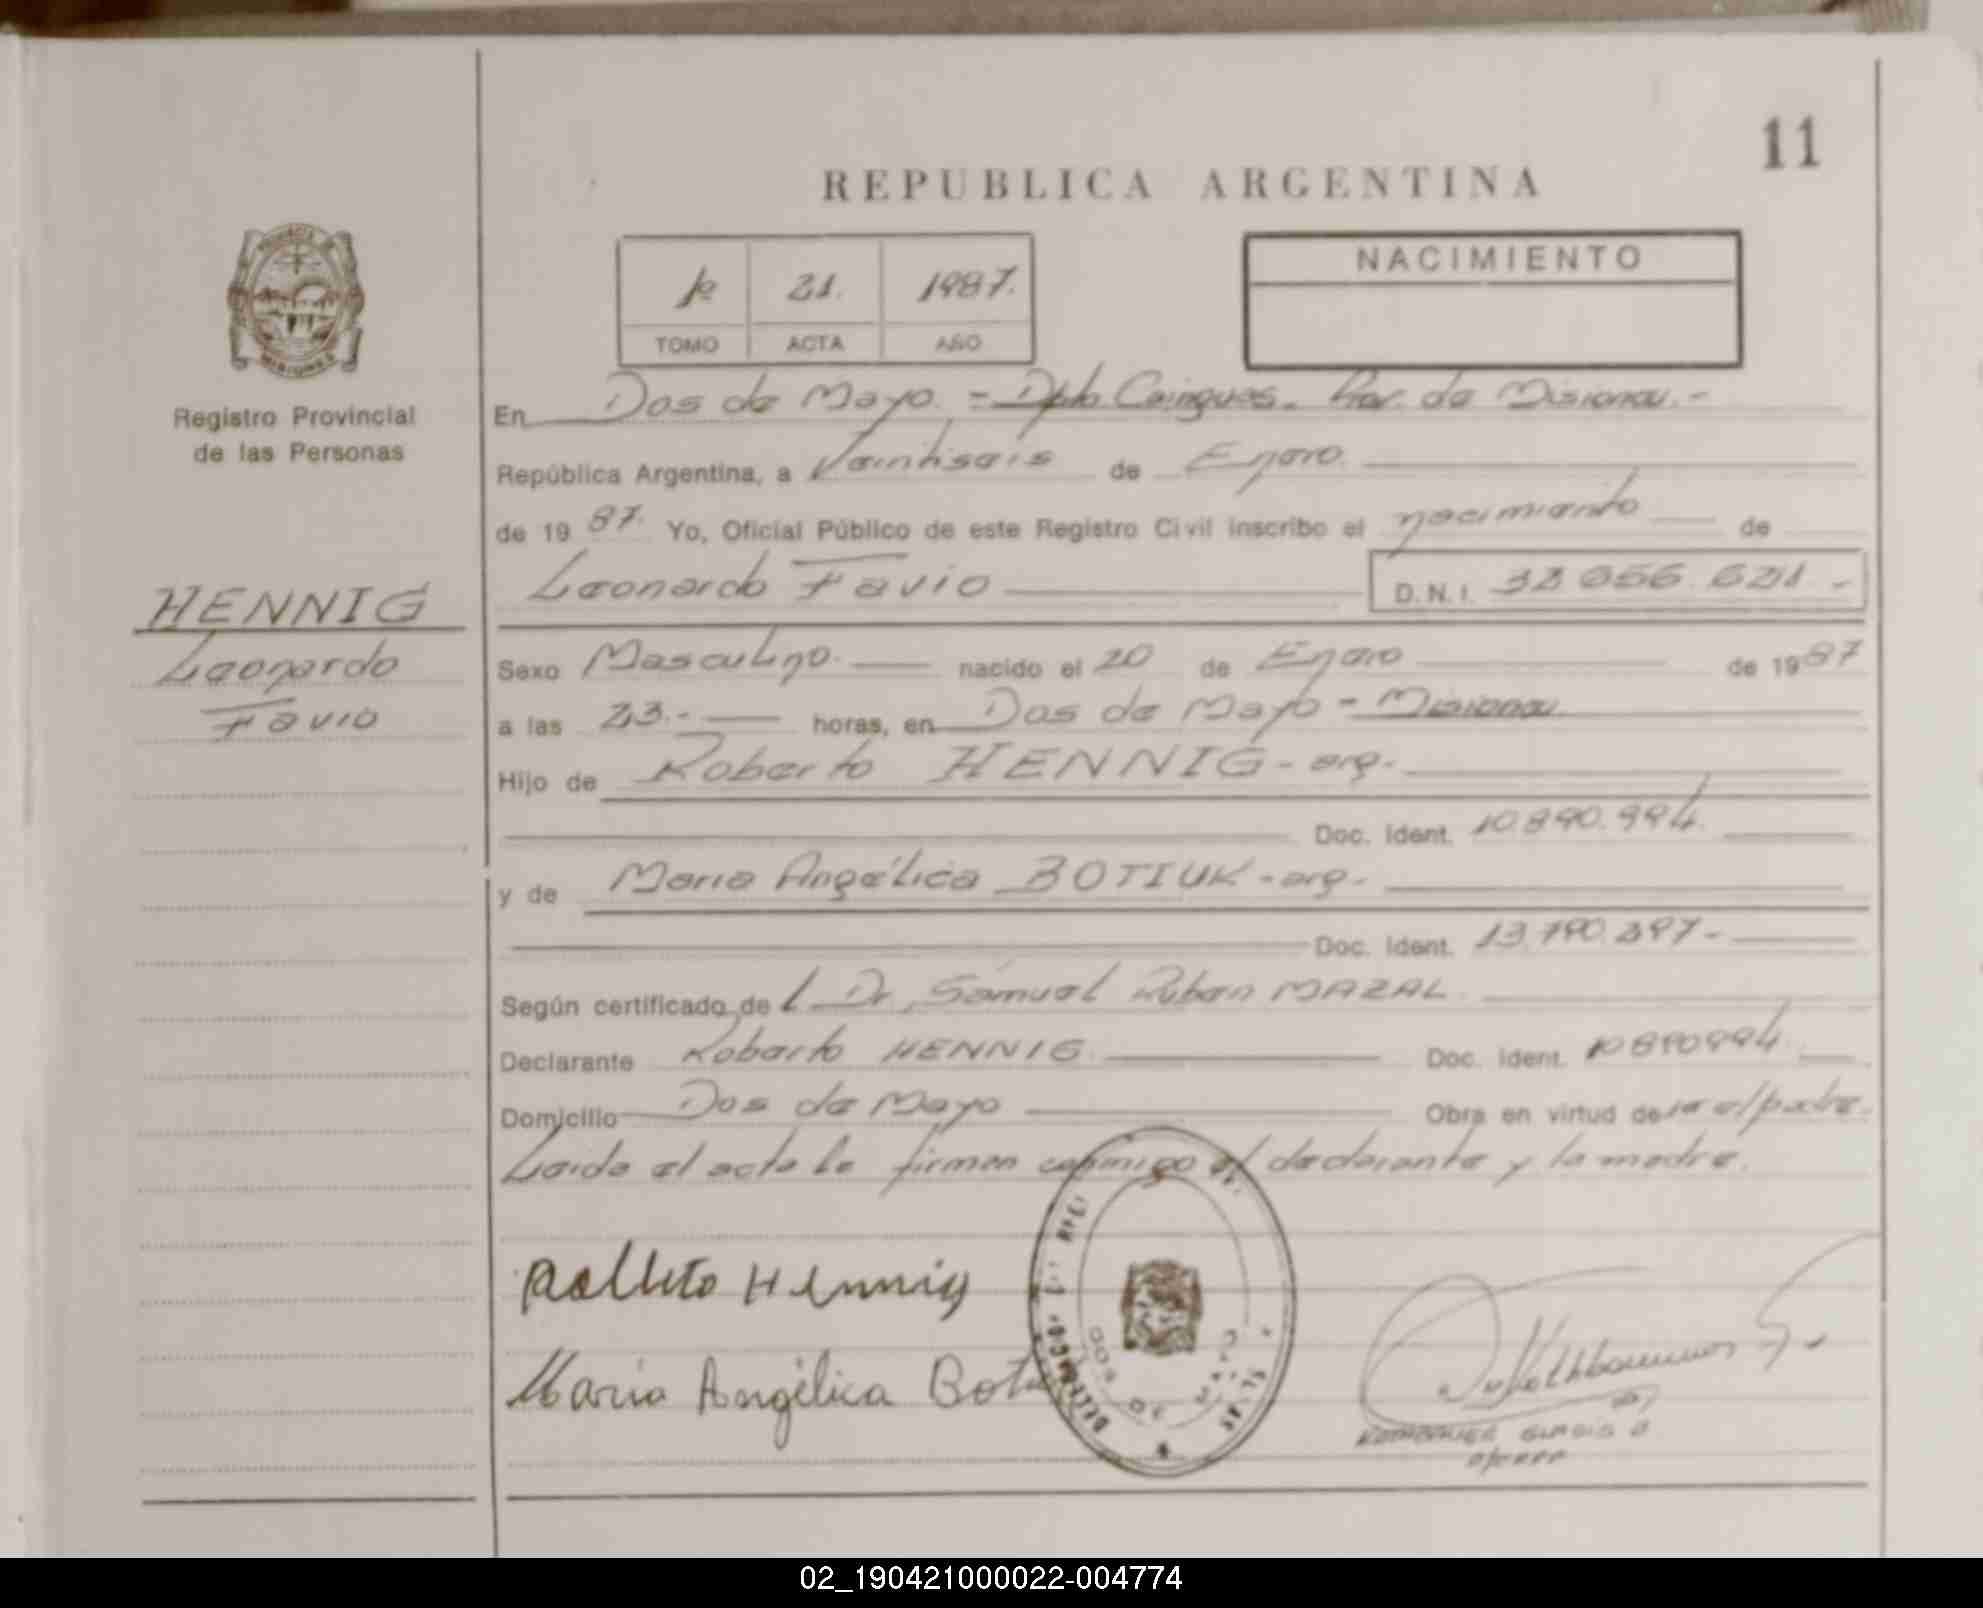 11
REPUBLICA ARGENTINA
PROVINCIA DE
MISIONES
Registro Provincial
de las Personas
1º 21. 1987.
TOMO ACTA AÑO
NACIMIENTO
En Dos de Mayo. - Dpto Cainguas. Prov. de Misiones.-
República Argentina, a Veintiseis de Enero.
de 1987. Yo, Oficial Público de este Registro Civil inscribo el nacimiento de
Leonardo Favio D.N.I.
HENNIG
Leonardo
Favio
Sexo Masculino. nacido el 20 de Enero de 1987
a las 23.- horas, en Dos de Mayo - Misiones.
Hijo de Roberto HENNIG - arg.-
Doc. Ident. 10.890.994.
y de Maria Angélica BOTIUK - arg.-
Doc. Ident. 13.790.297-
Según certificado del Dr. Samuel Ruben MAZAL.
Declarante Roberto HENNIG. Doc. Ident. 10890994.
Domicilio Dos de Mayo Obra en virtud de ser el padre.
Leida el acta la firman conmigo el declarante y la madre.
Roberto Hennig
Maria Angélica
DOS DE MAYO
02_190421000022-004774